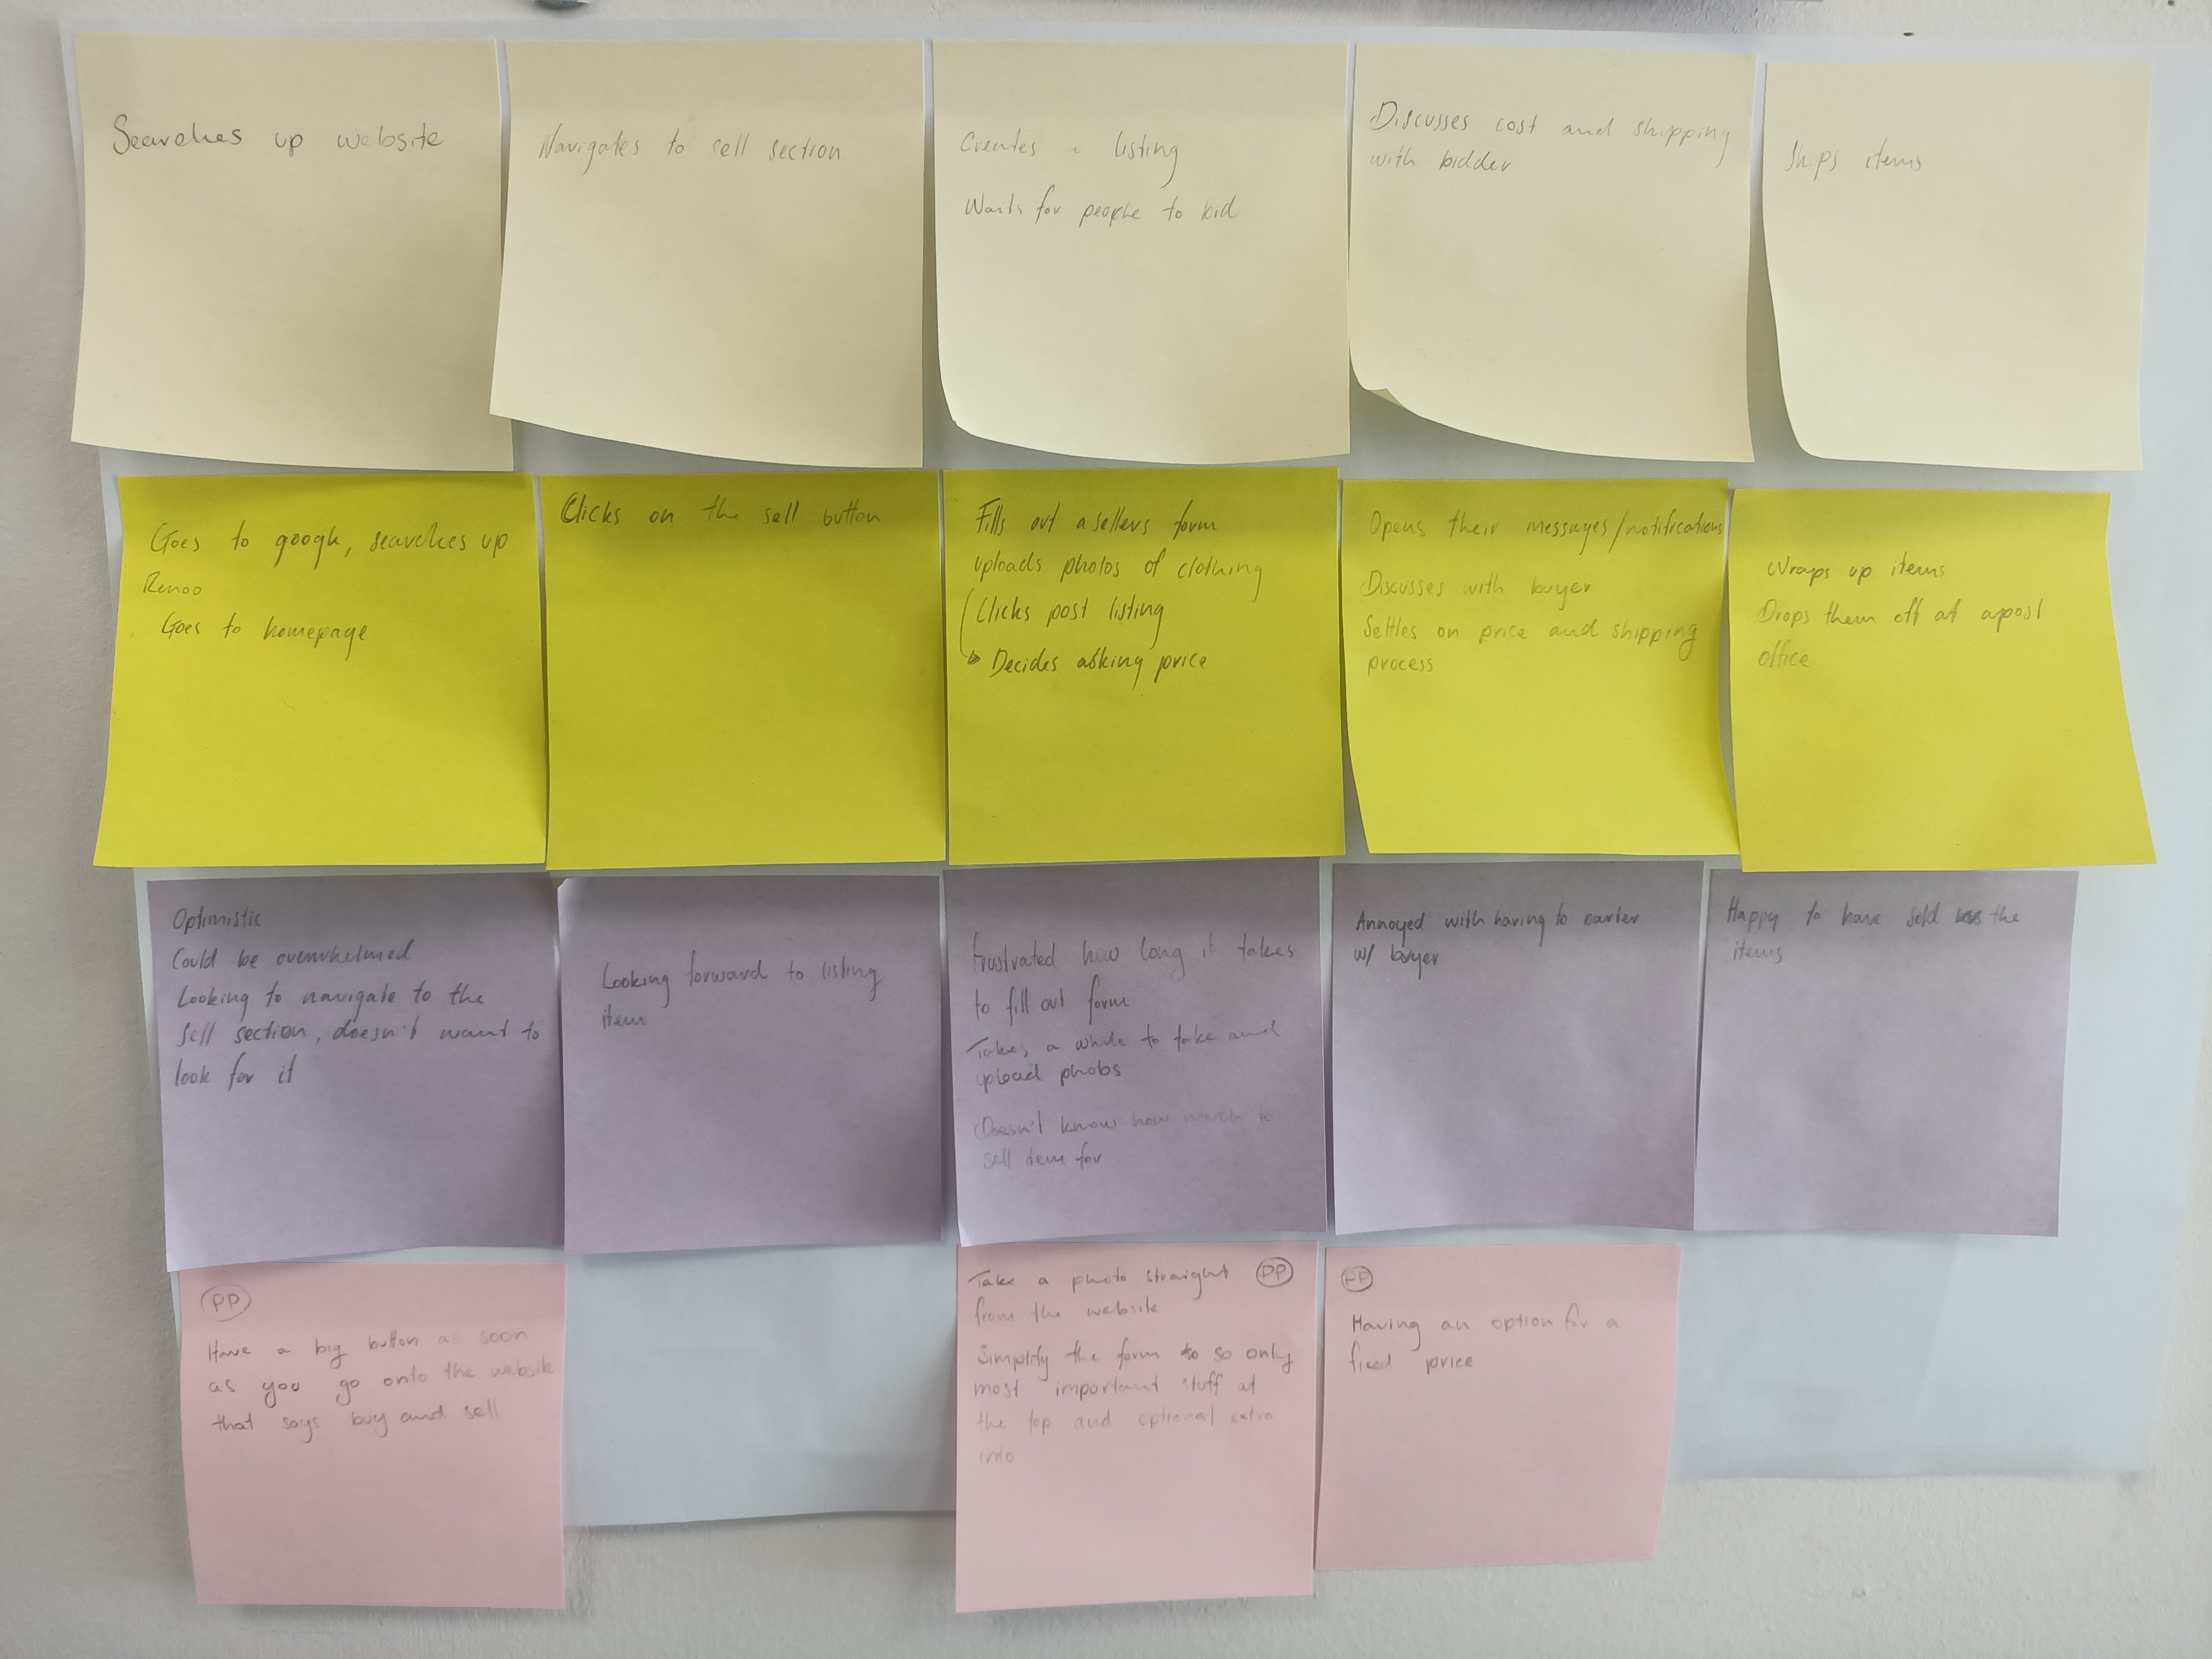 Searches up website
Navigates to sell section
Creates a listing
Waits for people to bid
Discusses cost and shipping
with bidder
Ships items
Goes to google, searches up
Renoo
Goes to homepage
Clicks on the sell button
Fills out a sellers form
uploads photos of clothing
Clicks post listing
Decides asking price
Opens their messages/notifications
Discusses with buyer
Settles on price and shipping
process
Wraps up items
Drops them off at a post
office
Optimistic
Could be overwhelmed
Looking to navigate to the
sell section, doesn't want to
look for it
Looking forward to listing
item
frustrated how long it takes
to fill out form
Takes a while to take and
upload photos
Doesn't know how much to
sell item for
Annoyed with having to barter
w/ buyer
Happy to have sold the
items
PP
Have a big button as soon
as you go onto the website
that says buy and sell
Take a photo straight PP
from the website
Simplify the form so only
most important stuff at
the top and optional extra
info
PP
Having an option for a
fixed price